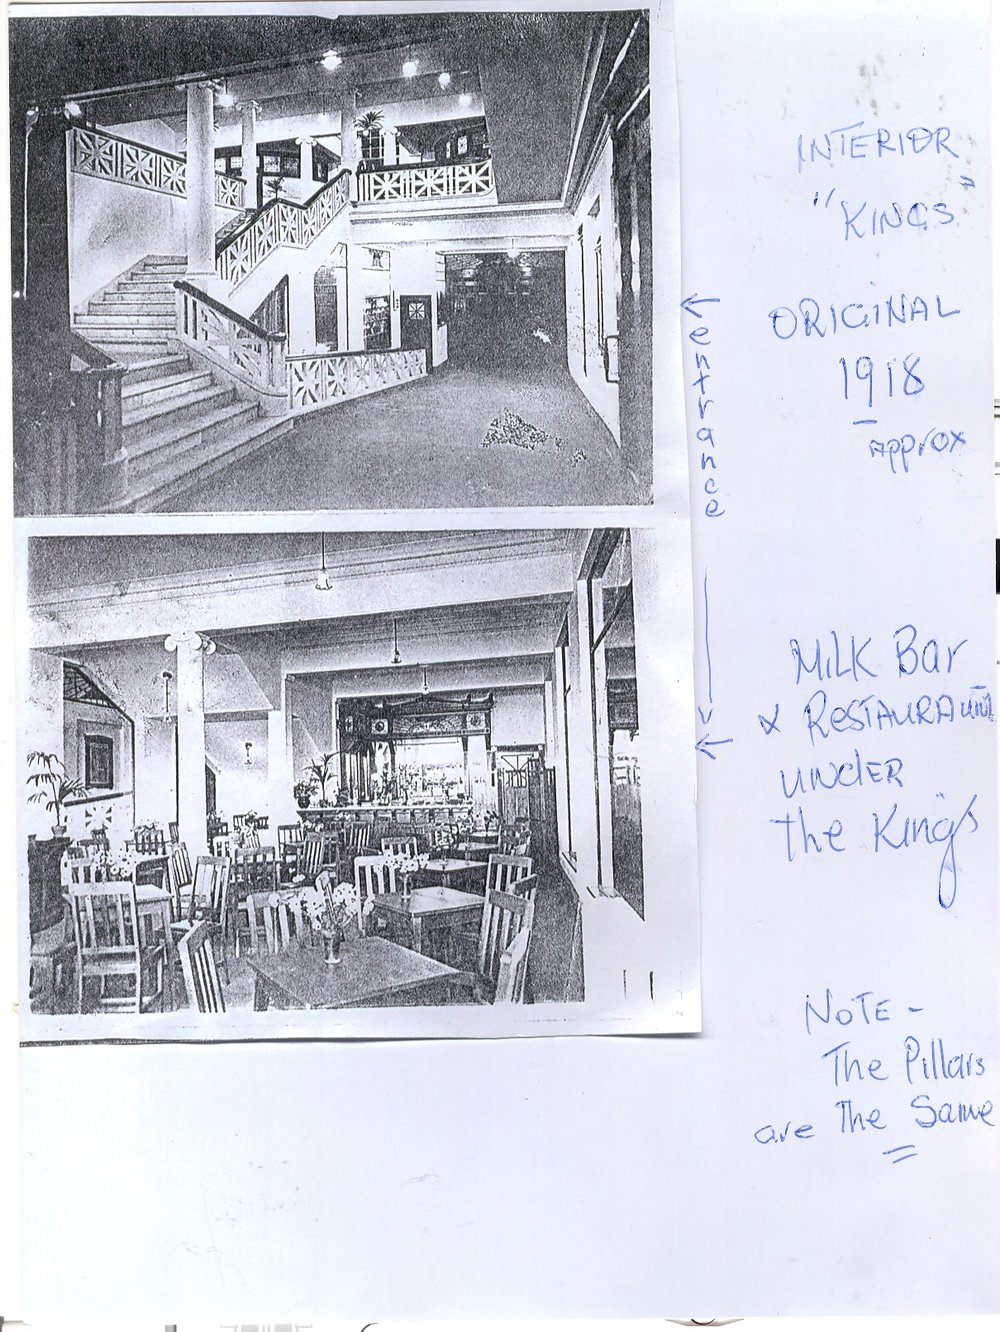 INTERIOR
"KINGS"
ORIGINAL
1918
Approx
entrance
MILK Bar
& RESTAURAunt
UNdER
the Kings
NOTE -
The Pillars
are The Same